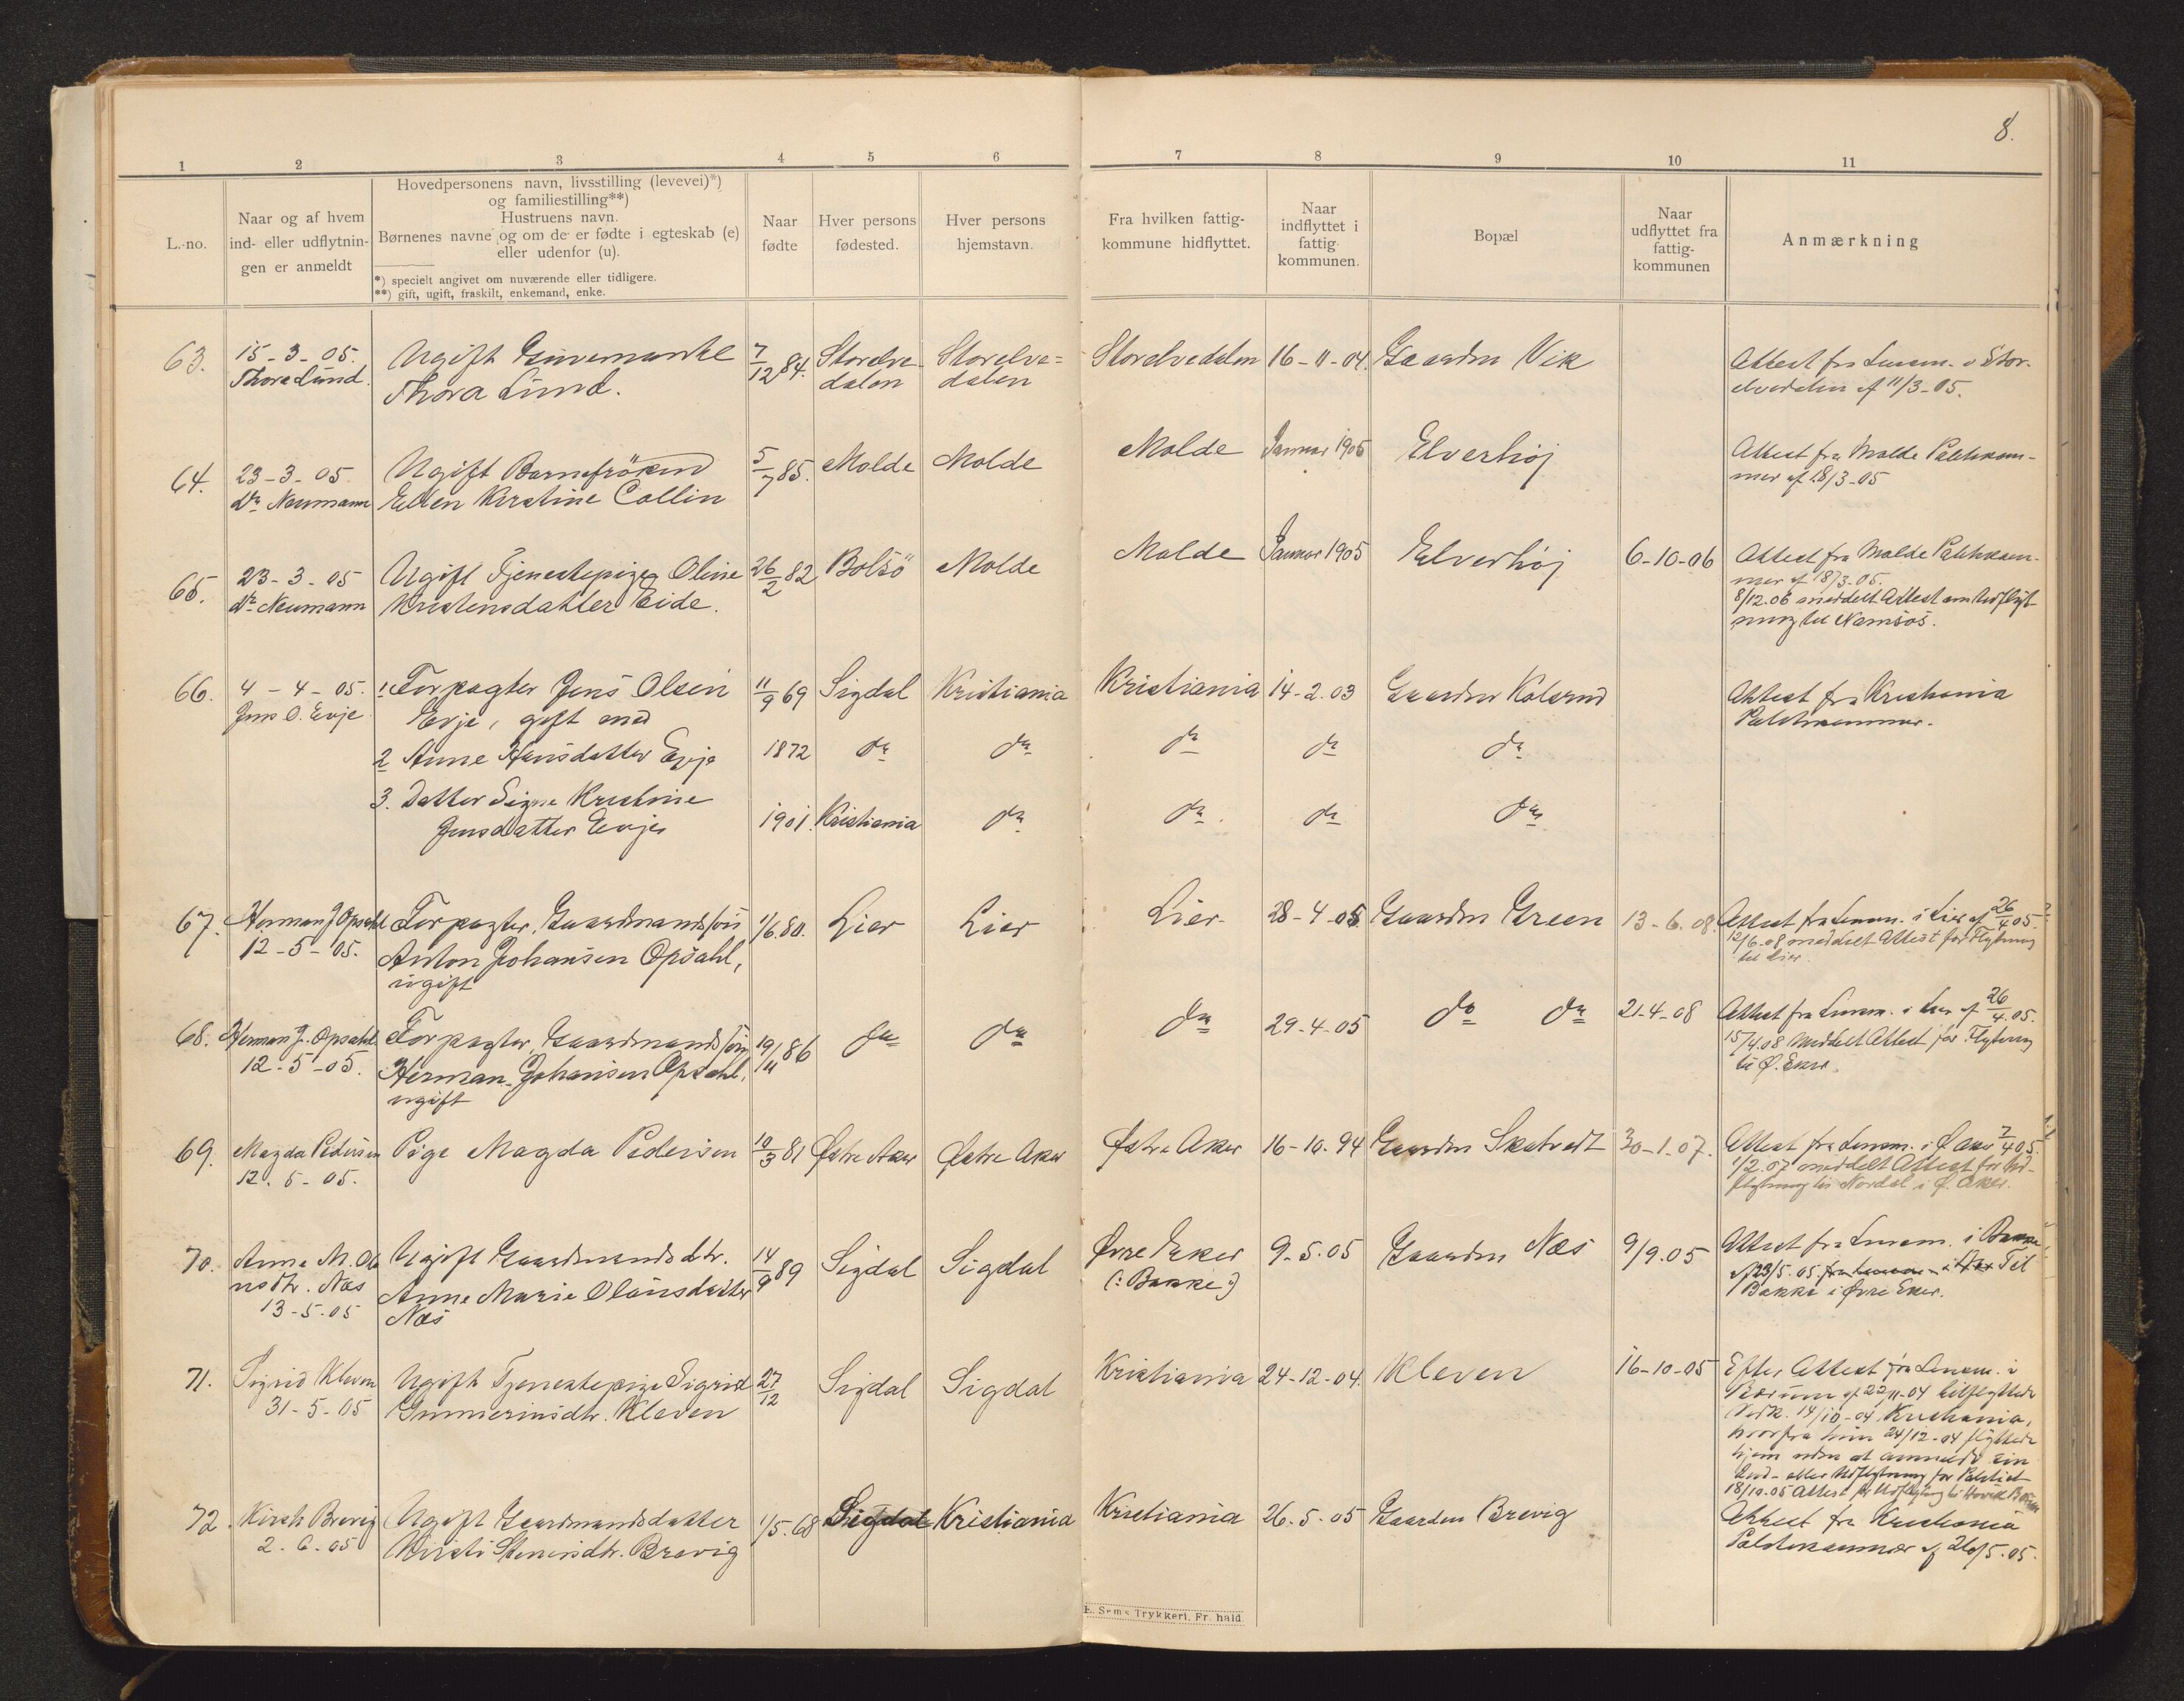 8.
1 2 3 4 5 6 7 8 9 10 11
L.-no.
Naar og af hvem
ind- eller udflytnin-
gen er anmeldt
Hovedpersonens navn, livsstilling (levevei)*)
og familiestilling**)
Hustruens navn.
Børnenes navne og om de er fødte i egteskab (e)
eller udenfor (u).
*) specielt angivet om nuværende eller tidligere.
**) gift, ugift, fraskilt, enkemand, enke.
Naar
fødte
Hver persons
fødested.
Hver persons
hjemstavn.
Fra hvilken fattig-
kommune hidflyttet.
Naar
indflyttet i
fattig
kommunen.
Bopæl
Naar
udflyttet fra
fattig-
kommunen
Anmærkning
63.
15-3-05.
Thora Lund.
Ugift
Thora Lund.
7/12 84.
Storelve-
dalen
Storelve=
dalen
Storelvedalen
16-11-04.
Gaarden Vik
Attest fra Lensm. i Stor-
elvedalen af 11/3-05.
64.
23-3-05.
Dr. Neumann
Ugift Barnefröken
Ellen Kirstine Collin
5/7 85.
Molde
Molde
Molde
Januar 1905
Elverhøj
Attest fra Molde Politikam-
mer af 18/3-05
65.
23-3-05
Dr. Neumann
Ugift Tjenestepige Oline
Kristensdatter Eide.
26/2 82
Bolsö
Molde
Molde
Januar 1905
Elverhøj
6-10-06
Attest fra Molde Politikam-
mer af 18/3-05.
8/12.06 meddelt Attest om Udflyt-
ning til Namsos.
66.
4-4-05.
Jens O. Evje
1. Forpagter Jens Olsen
Evje, gift med
11/9 69
Sigdal
Kristiania
Kristiania
14-2.03
Gaarden Kolsrud
Attest fra Kristiania
Politikammer.
2 Anne Hansdatter Evje
1872
do
do
do
do
do
3. Datter Signe Kristine
Jensdatter Evje
1901.
Kristiania
do
do
do
do
67.
Herman J Opsahl
12-5-05.
Forpagter, Gaardmandssøn
Anton Johansen Opsahl,
ugift
1/6.80.
Lier
Lier
Lier
28-4-05
Gaarden Green
13-6.08
Attest fra Lensm. i Lier af 26/4 05.
12/6-08 meddelt Attest for Flytning
til Lier.
68.
Herman J. Opsahl
12-5-05.
Forpagter, Gaardmandssøn
Herman Johansen Opsahl,
ugift
19/11 86
do
do
do
29-4-05
do do
21-4-08
Attest fra Lensm. i Lier af 26/4.05.
15/4.08 meddelt Attest for Flytning
til Ø. Eker.
69.
Magda Pedersen
12.5-05.
Pige Magda Pedersen
10/3 81
Østre Aker
Østre Aker
Østre Aker
16-10.94
Gaarden Skatvedt
30-1.07.
Attest fra Lensm. i Ø Aker 7/4 05.
1/2.07 meddelt Attest for Ud-
flytning til Nordal i Ø. Aker.
70.
Anne M. Ola
nsdtr. Næs
13-5.05
Ugift Gaardmandsdtr.
Anne Marie Olausdatter
Næs
14/9 89
Sigdal
Sigdal
Øvre Eker
(: Bakke :)
9-5.05
Gaarden Næs
9/9.05
Attest fra Lensm. i Bakke
af 23/5.05. Til
Bakke i Øvre Eker.
71.
Sigrid Kleven
31-5-05
Ugift Tjenestepige Sigrid
Gunnerinsdtr. Kleven
27/12
Sigdal
Sigdal
Kristiania
24-12-04.
Kleven
16-10-05
Efter Attest fra Lensm. i
Bærum af 22/11-04 tilflyttede
Vedk. 14/10-04 Kristiania,
hvorfra hun 24/12-04 flyttede
hjem uden at anmelde sin
Ind- eller Udflytning for Politiet
18/10.05 Attest for Udflytning til
72.
Kirsti Brevig
2.6.05
Ugift Gaardmandsdatter
Kirsti Steinsdtr. Brevig
1/5.68
Sigdal
Kristiania
Kristiania
26.5-05
Gaarden Brevig
Attest fra Kristiania
Politikammer af 26/5.05.
E. Sems Trykkeri, Fr. hald.